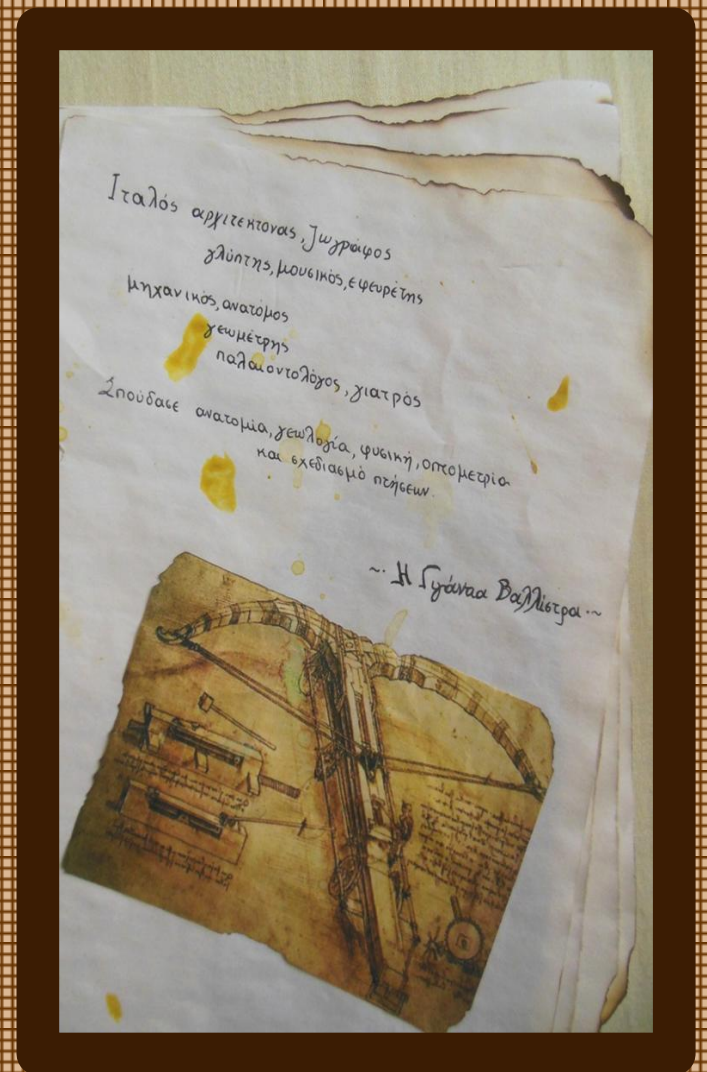 Ιταλός αρχιτεκτονας, ζωγράφος
γλύπτης, μουσικός, εφευρέτης
μηχανικός, ανατόμος
γεωμέτρης
παλαιοντολόγος, γιατρός
Σπούδασε ανατομία, γεωλογία, φυσική, οπτομετρία
και σχεδιασμό πτήσεων.
~. Η Γιγάντια Βαλλίστρα .~